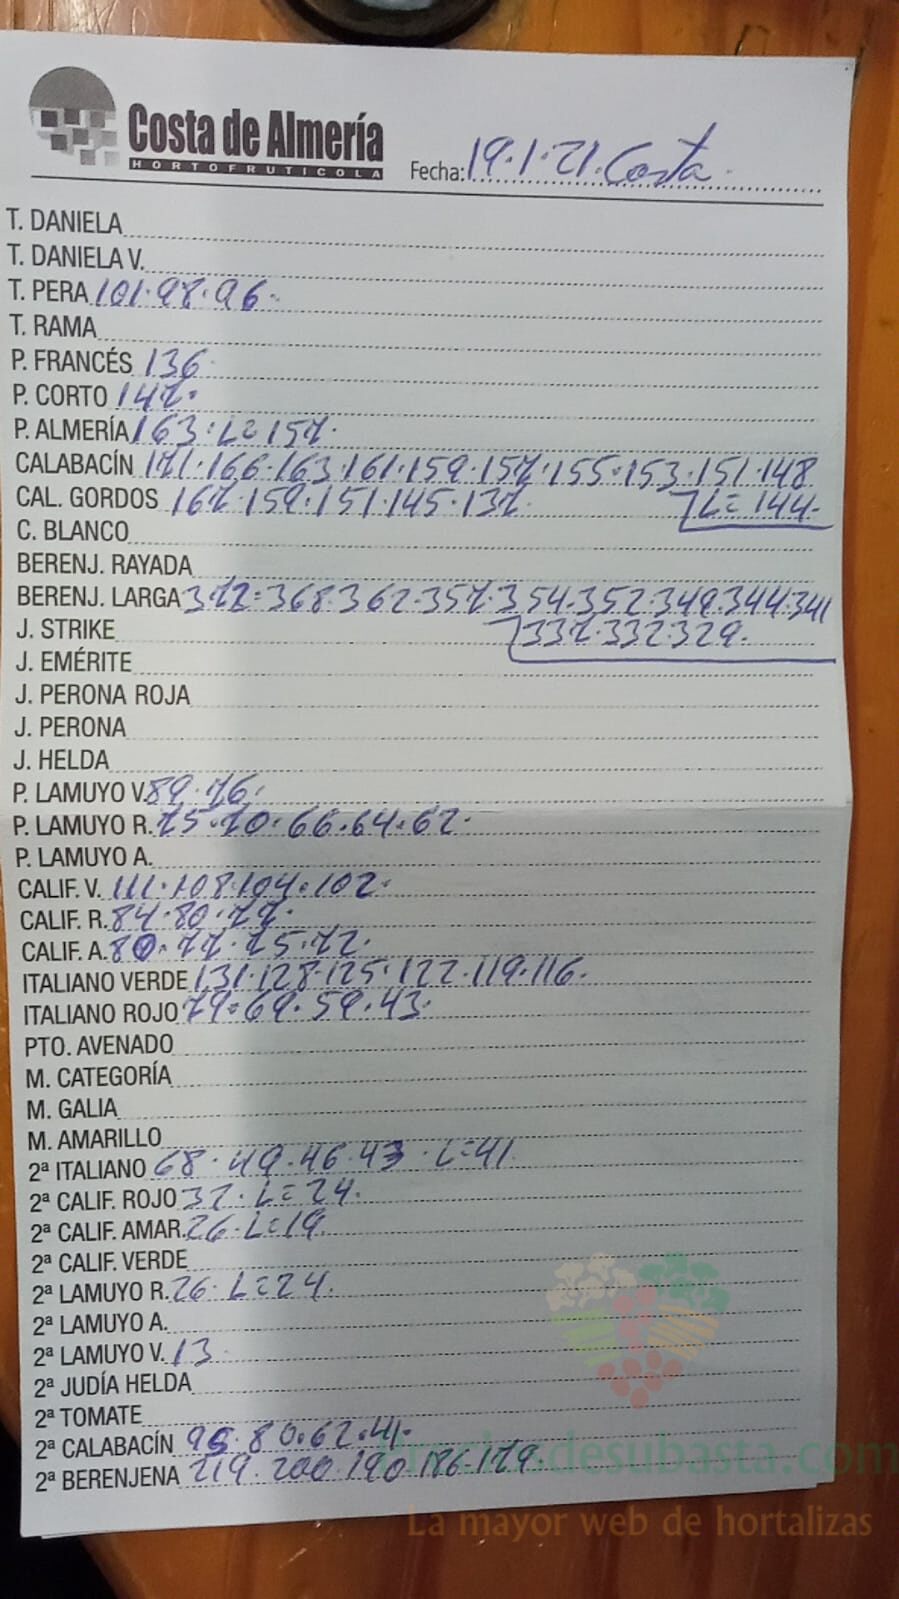 Costa de Almería
HORTOFRUTICOLA
Fecha: 19.1.21. Costa.
T. DANIELA
T. DANIELA V.
T. PERA 101.98.96.
T. RAMA
P. FRANCÉS 136
P. CORTO 147.
P. ALMERÍA 163. L=157.
CALABACÍN 171.166.163.161.159.157.155.153.151.148
CAL. GORDOS 167.159.151.145.137. L=144-
C. BLANCO
BERENJ. RAYADA
BERENJ. LARGA 372.368.362.357.354.352.349.344.341
J. STRIKE 337.332.329.
J. EMÉRITE
J. PERONA ROJA
J. PERONA
J. HELDA
P. LAMUYO V. 89.76.
P. LAMUYO R. 75.70.66.64.62.
P. LAMUYO A.
CALIF. V. 111.108.104.102.
CALIF. R. 84.80.77.
CALIF. A. 80.77.75.72.
ITALIANO VERDE 131.128.125.122.119.116.
ITALIANO ROJO 79.69.59.43.
PTO. AVENADO
M. CATEGORÍA
M. GALIA
M. AMARILLO
2ª ITALIANO 68.49.46.43. L=41
2ª CALIF. ROJO 32. L=24.
2ª CALIF. AMAR. 26. L=19.
2ª CALIF. VERDE
2ª LAMUYO R. 26. L=24.
2ª LAMUYO A.
2ª LAMUYO V. 13
2ª JUDÍA HELDA
2ª TOMATE
2ª CALABACÍN 95.80.62.41.
2ª BERENJENA 219.200.190.186.179
Preciosdesubasta.com
La mayor web de hortalizas